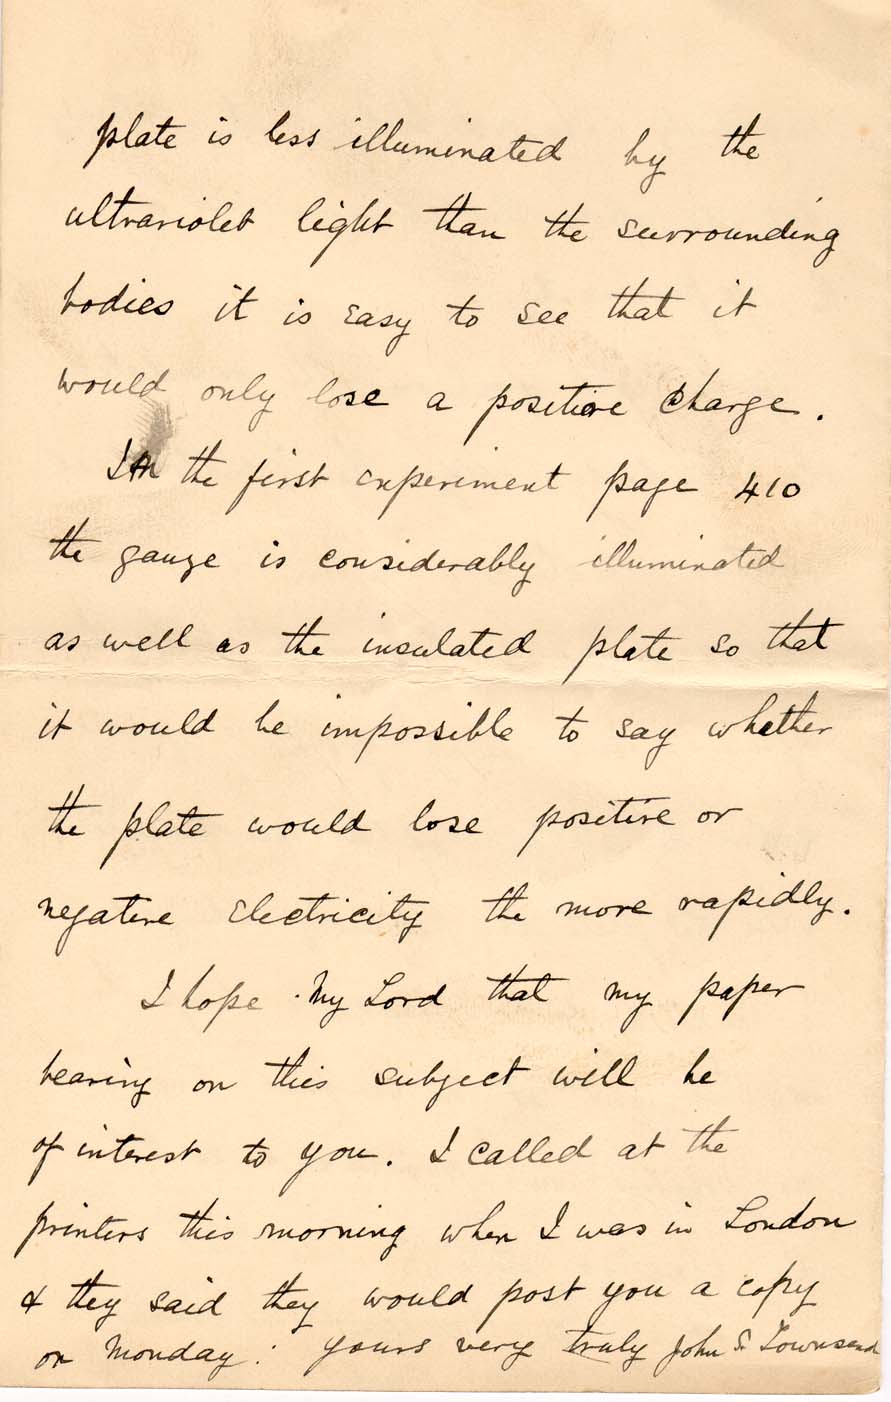 plate is less illuminated by the
ultraviolet light than the surrounding
bodies it is easy to see that it
would only lose a positive charge.
In the first experiment page 410
the gauze is considerably illuminated
as well as the insulated plate so that
it would be impossible to say whether
the plate would lose positive or
negative electricity the more rapidly.
I hope My Lord that my paper
bearing on this subject will be
of interest to you. I called at the
printers this morning when I was in London
& they said they would post you a copy
on Monday: yours very truly John S. Townsend